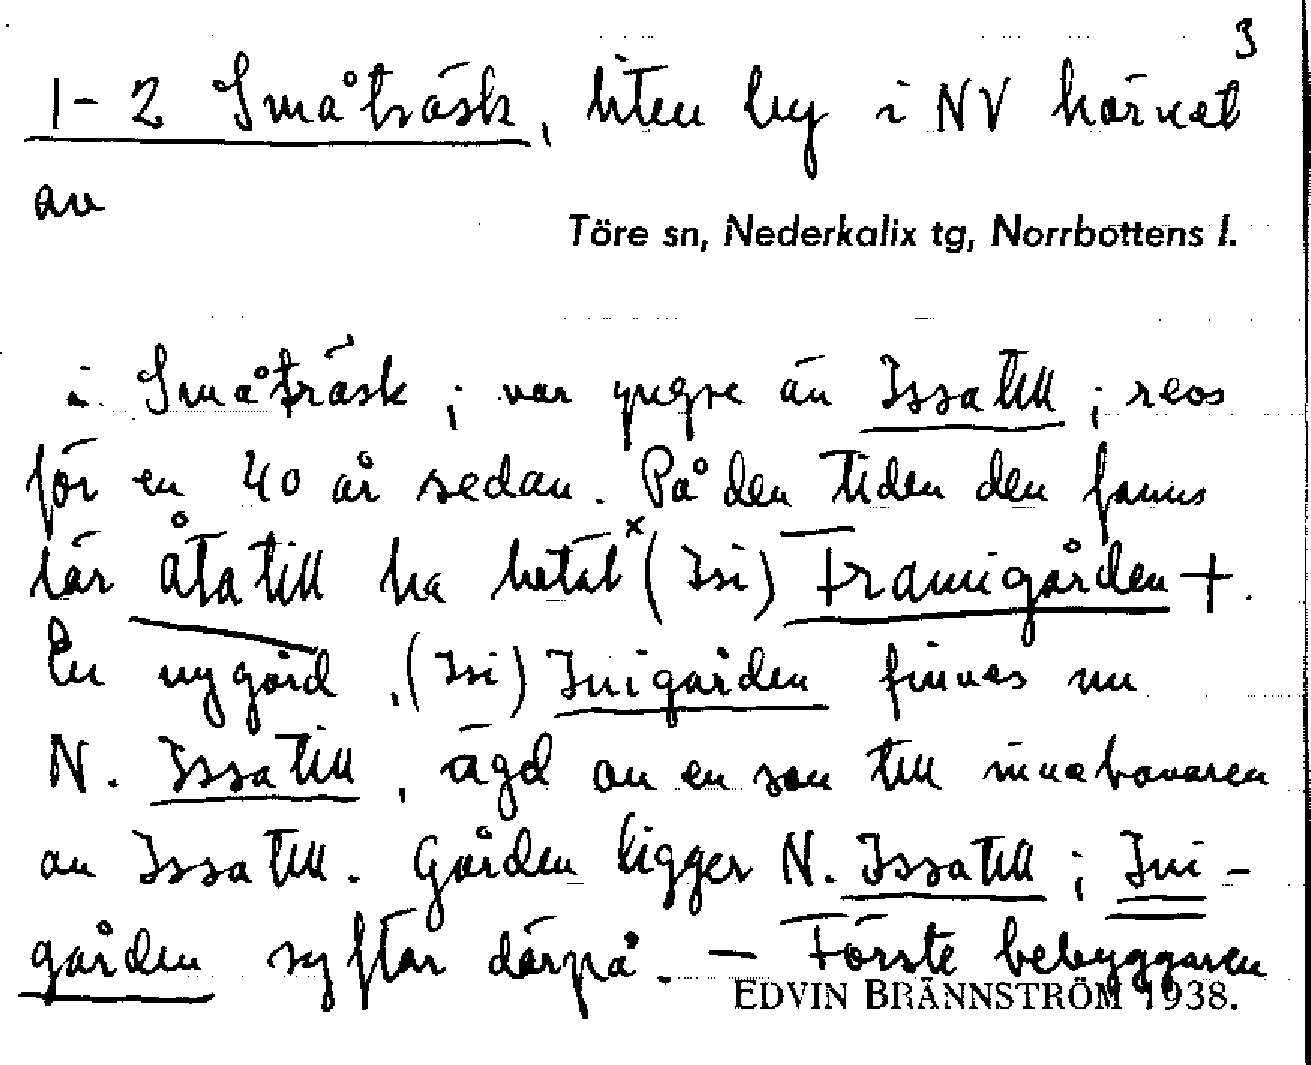 3
1-2 Småträsk, liten by i NV hörnet
av
Töre sn, Nederkalix tg, Norrbottens l.
i Småträsk; var yngre än Issatill; revs
för en 40 år sedan. På den tiden den fanns
lär Åtatill ha hetat x (Isi) Framigården +.
En ny gård, (Isi) Inigården finnes nu
N. Issatill, ägd av en son till innehavaren
av Issatill. Gården ligger N. Issatill; Ini-
gården syftar därpå. — Förste bebyggaren
EDVIN BRÄNNSTRÖM 1938.